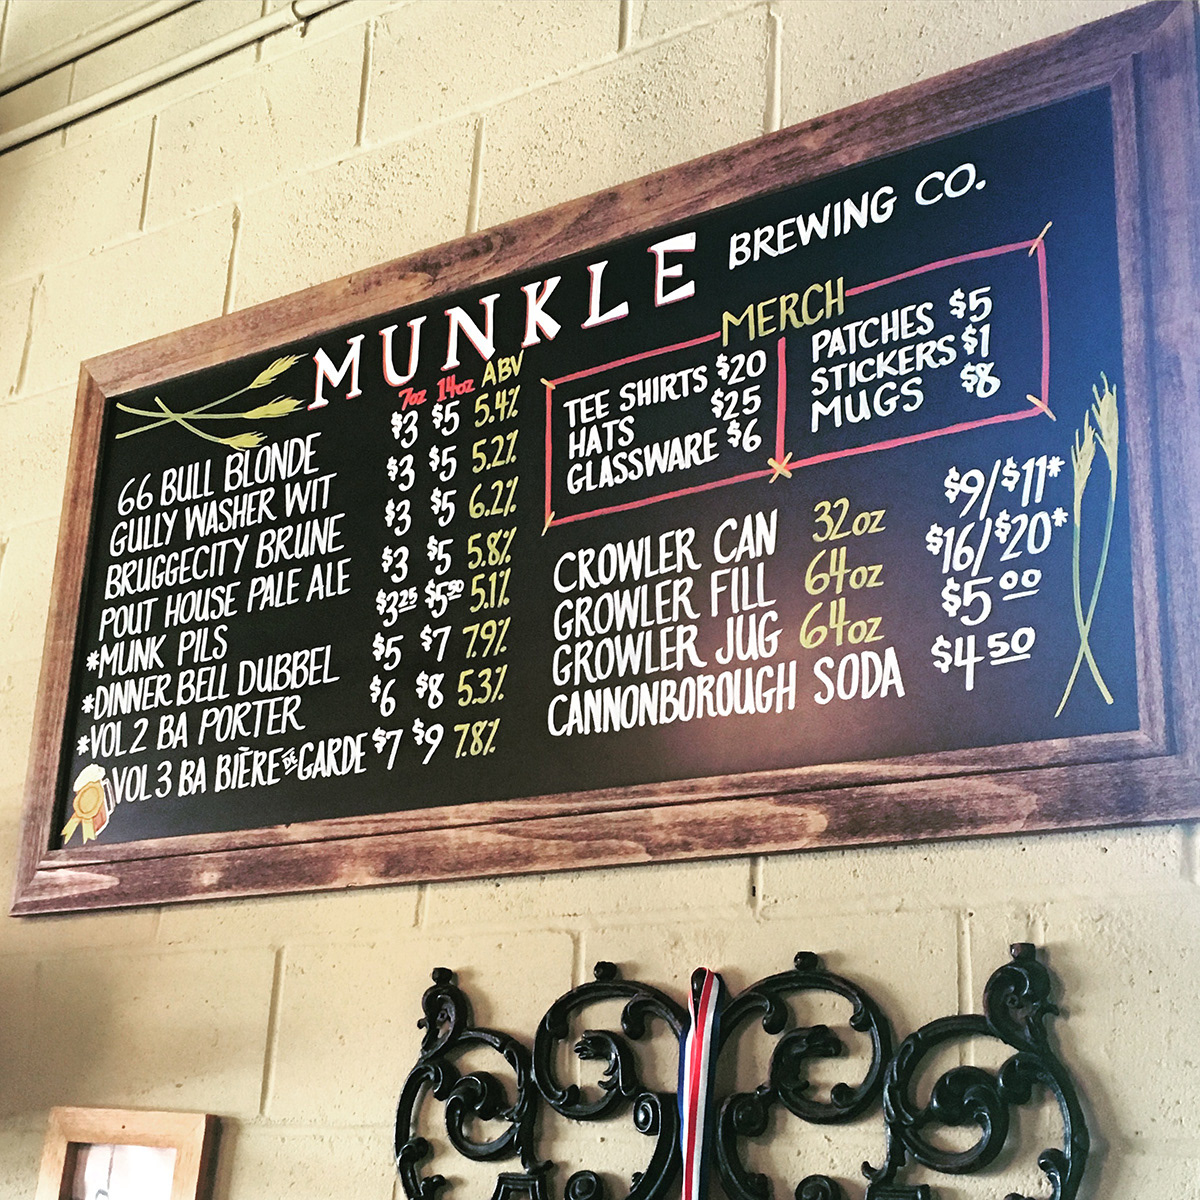 MUNKLE BREWING CO.
7oz 14oz ABV
66 BULL BLONDE $3 $5 5.4%
GULLY WASHER WIT $3 $5 5.2%
BRUGGECITY BRUNE $3 $5 6.2%
POUT HOUSE PALE ALE $3 $5 5.8%
*MUNK PILS $3 25 $5 50 5.1%
*DINNER BELL DUBBEL $5 $7 7.9%
*VOL 2 BA PORTER $6 $8 5.3%
VOL 3 BA BIÈRE DE GARDE $7 $9 7.8%
MERCH
TEE SHIRTS $20
HATS $25
GLASSWARE $6
PATCHES $5
STICKERS $1
MUGS $8
CROWLER CAN 32oz $9/$11*
GROWLER FILL 64oz $16/$20*
GROWLER JUG 64oz $5 00
CANNONBOROUGH SODA $4 50